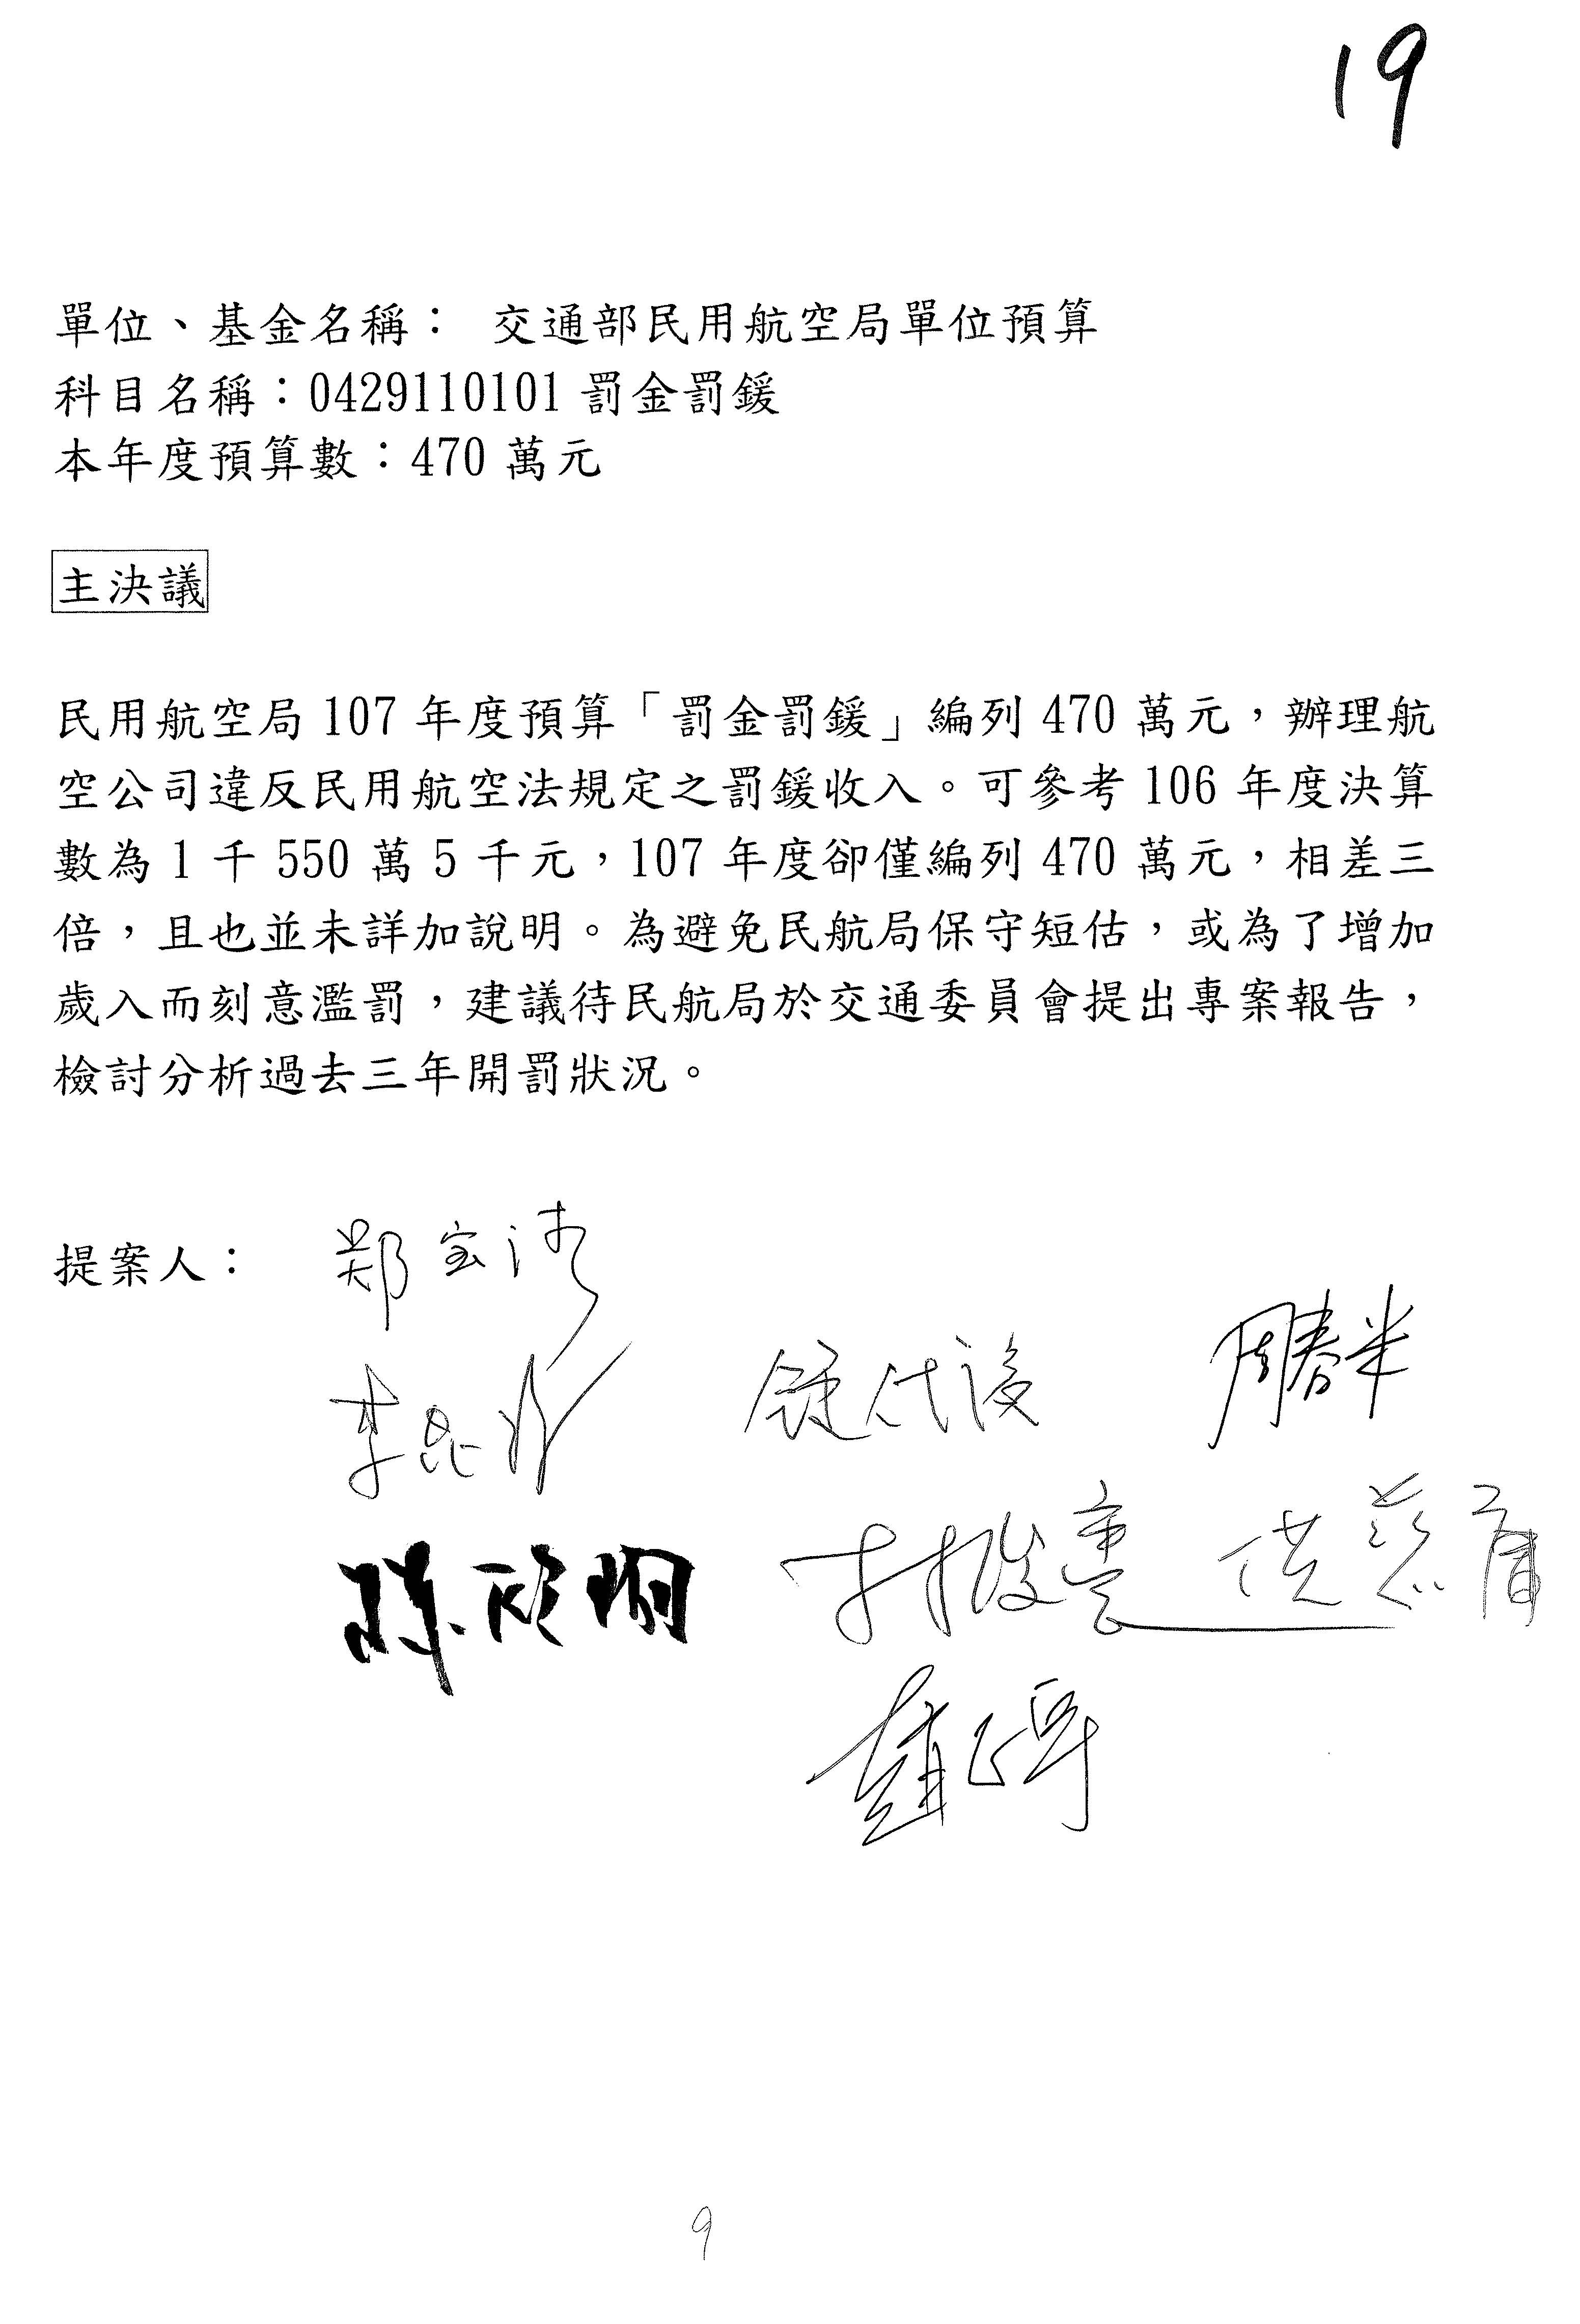 19
單位、基金名稱： 交通部民用航空局單位預算
科目名稱：0429110101 罰金罰鍰
本年度預算數：470 萬元
主決議
民用航空局 107 年度預算「罰金罰鍰」編列 470 萬元，辦理航
空公司違反民用航空法規定之罰鍰收入。可參考 106 年度決算
數為 1 千 550 萬 5 千元，107 年度卻僅編列 470 萬元，相差三
倍，且也並未詳加說明。為避免民航局保守短估，或為了增加
歲入而刻意濫罰，建議待民航局於交通委員會提出專案報告，
檢討分析過去三年開罰狀況。
提案人： 郑宝清
李昆泽
周春米
林俊憲 洪慈庸
9